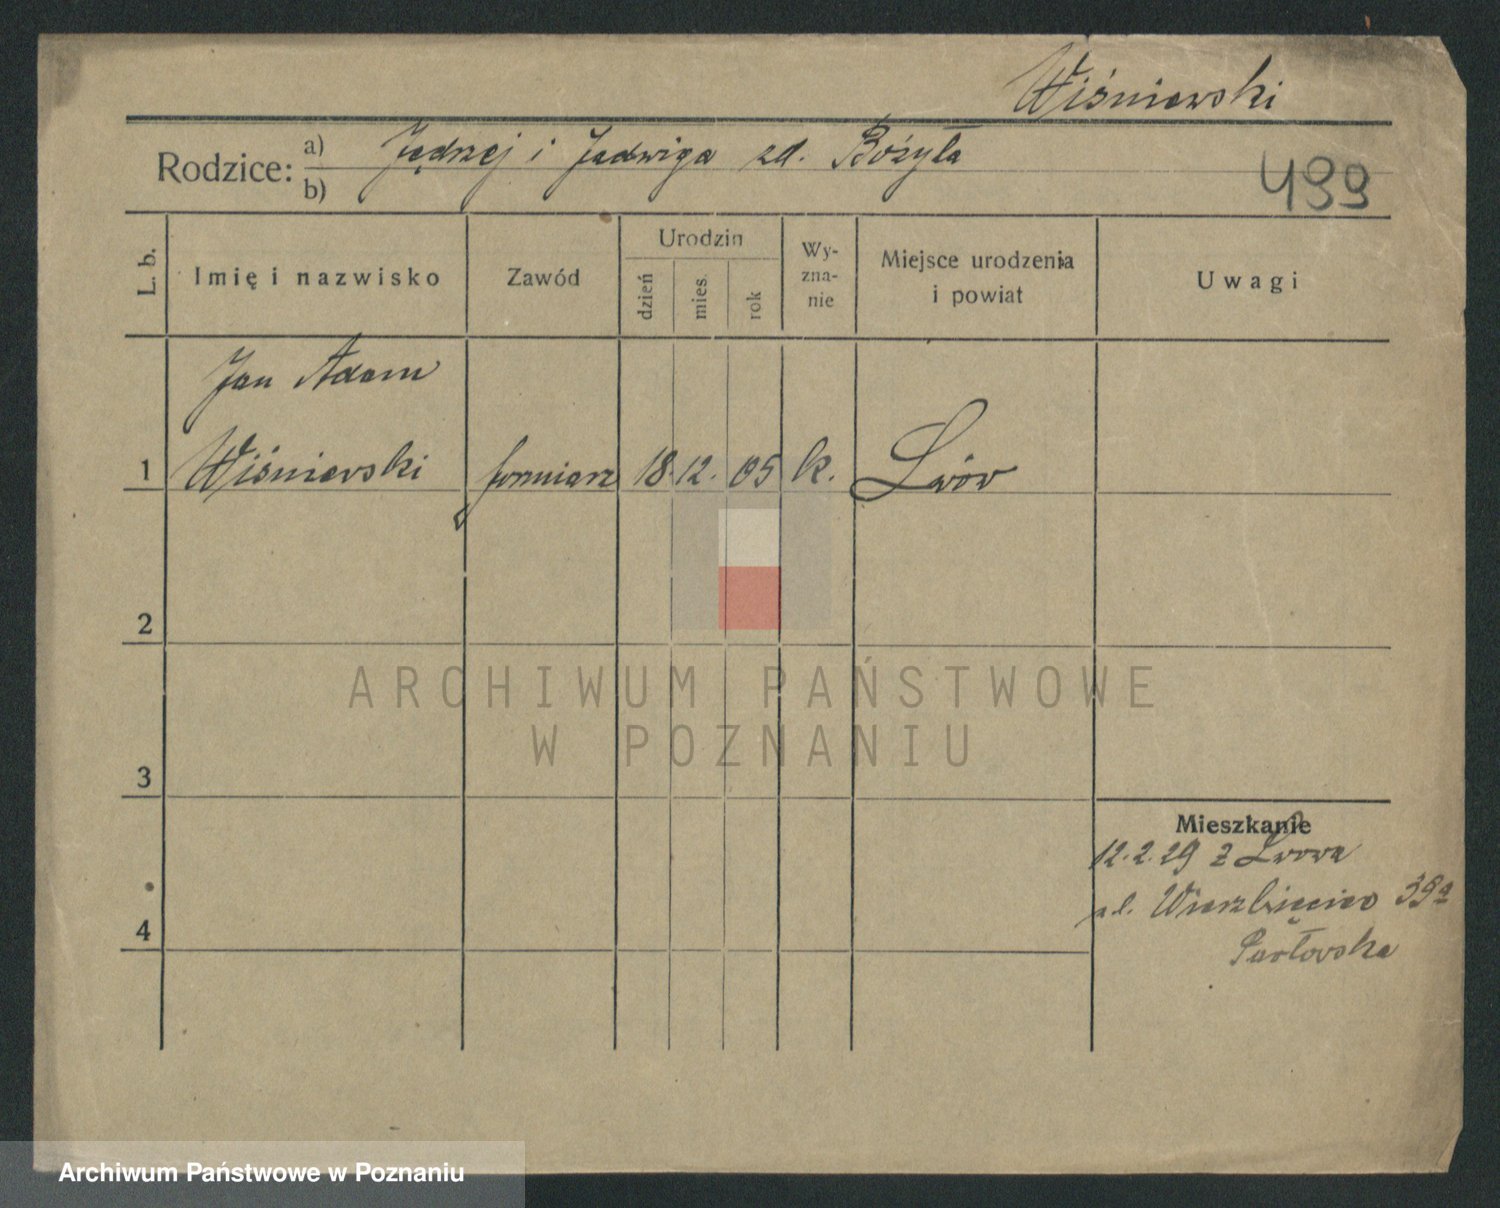 Wiśniewski
Rodzice: a) Jędrzej i Jadwiga zd. Bożyła
b)
499
L. b.
Imię i nazwisko
Zawód
Urodzin
dzień
mies.
rok
Wy-
zna-
nie
Miejsce urodzenia
i powiat
Uwagi
Jan Adam
1 Wiśniewski formiarz 18. 12. 05 k. Lwów
2
3
4
Mieszkanie
12.2.29 z Lwowa
ul. Wierzbięcice 39a
ARCHIWUM PAŃSTWOWE
W POZNANIU
Archiwum Państwowe w Poznaniu